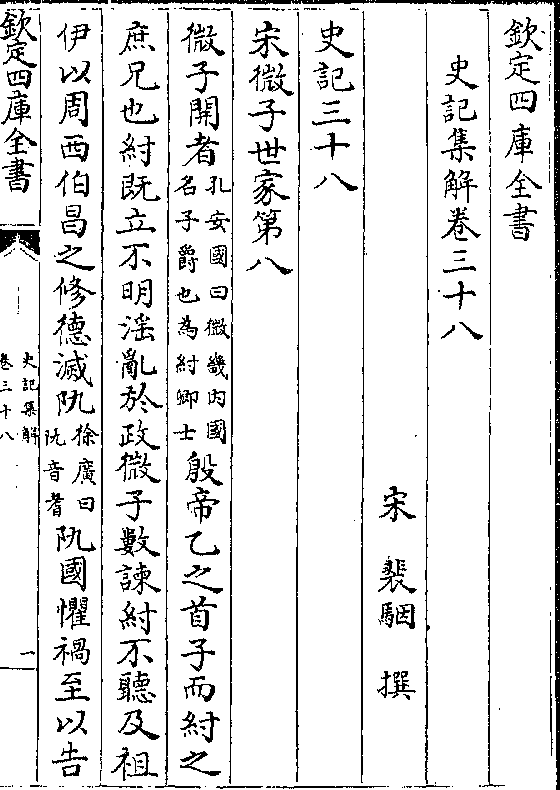 欽定四庫全書
史記集解卷三十八
宋 裴駰 撰
史記三十八
宋微子世家第八
微子開者孔安國曰微畿内國名子爵也為紂卿士殷帝乙之首子而紂之
庶兄也紂既立不明淫亂於政微子數諫紂不聽及祖
伊以周西伯昌之修德滅阢徐廣曰阢音耆阢國懼禍至以告
欽定四庫全書
史記集解
卷三十八
一